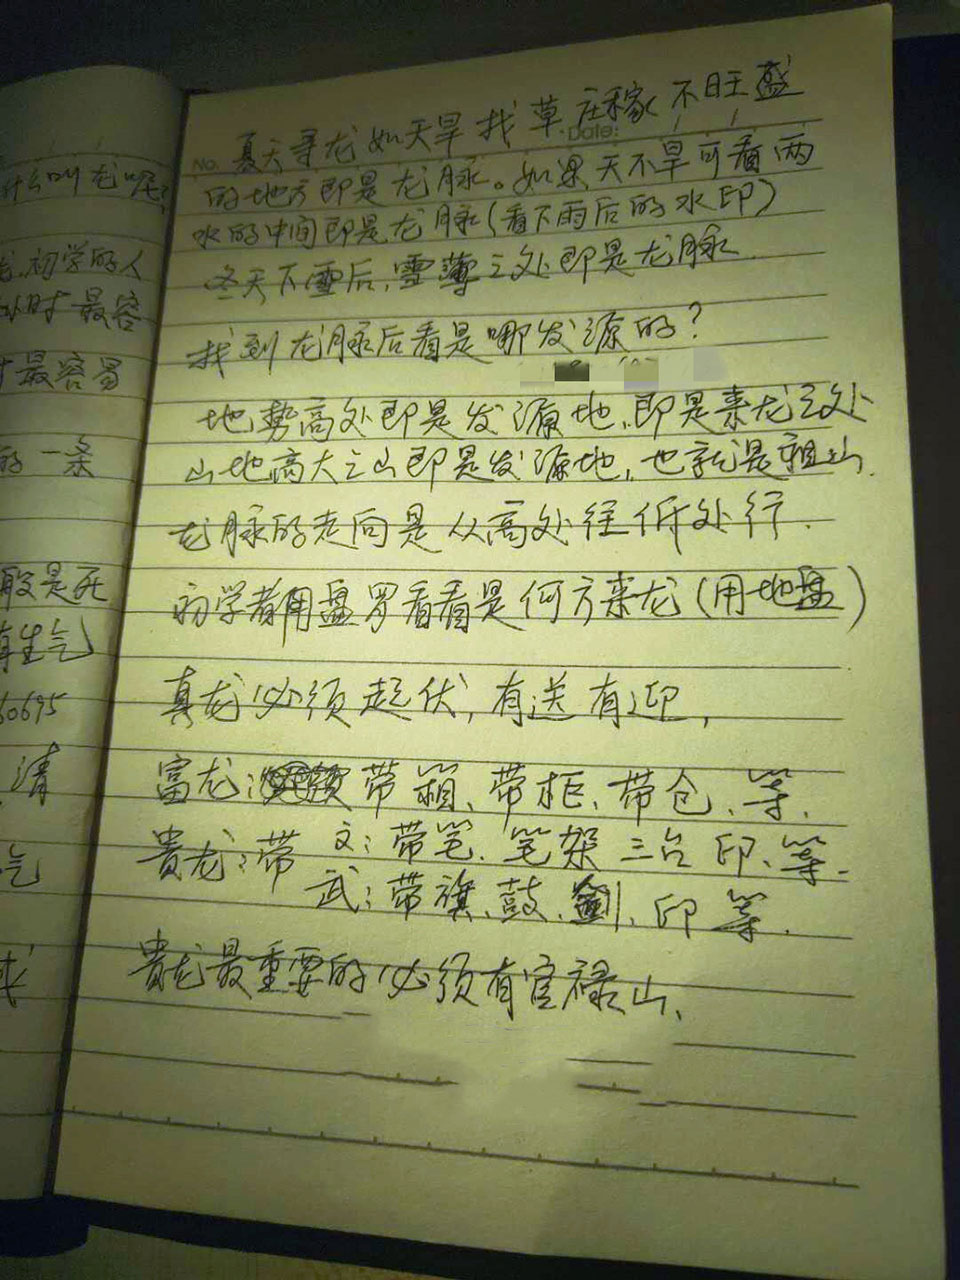 什么叫龙呢?
龙,初学的人
时最容
最容易
的一条
般是死
有生气
60695
清
气
No. Date:
夏天寻龙如天旱找草庄稼不旺盛
的地方即是龙脉。如果天不旱可看两
水的中间即是龙脉(看下雨后的水印)
冬天下雪后,雪薄之处即是龙脉.
找到龙脉后看是哪发源的?
地势高处即是发源地,即是来龙之处
山地高大之山即是发源地,也就是祖山.
龙脉的走向是从高处往低处行.
初学者用盘罗看看是何方来龙(用地盘)
真龙必须起伏,有送有迎,
富龙:带箱、带柜、带仓、等.
贵龙:带 文:带笔、笔架 三台 印、等.
武:带旗、鼓、劍、印 等.
贵龙最重要的必须有官禄山、